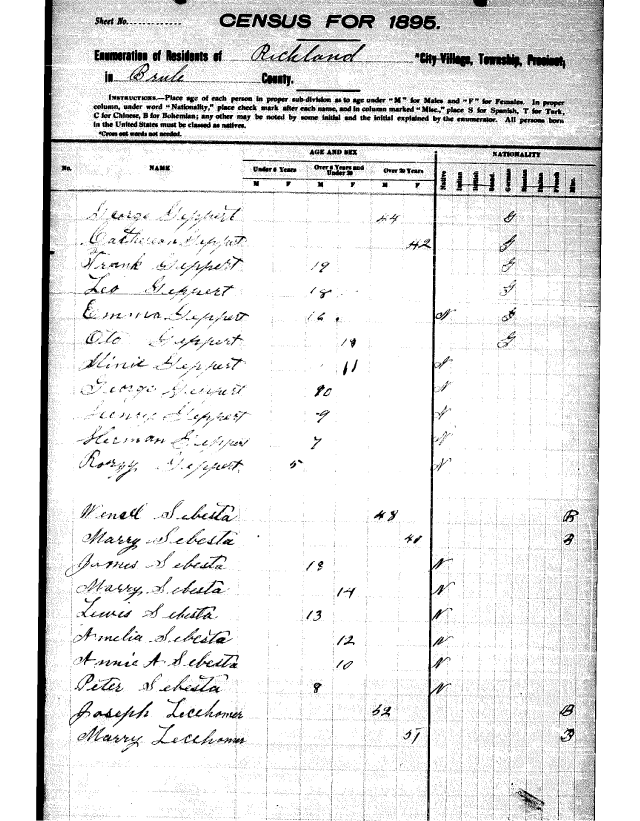 Sheet No.
CENSUS FOR 1895.
Enumeration of Residents of Richland *City-Village, Township, Precinct,
in Brule County.
INSTRUCTIONS.—Place age of each person in proper sub-division as to age under "M" for Males and "F" for Females. In proper
column, under word "Nationality," place check mark after each name, and in column marked "Misc.," place S for Spanish, T for Turk,
C for Chinese, B for Bohemian; any other may be noted by some initial and the initial explained by the enumerator. All persons born
in the United States must be classed as natives.
*Cross out words not needed.
AGE AND SEX NATIONALITY
No. NAME Under 6 Years Over 6 Years and Under 20 Over 20 Years Native Indian German French Mis.
M F M F M F
George Geppert 44 G
Geppert 42 G
Frank Geppert 19 G
Leo Geppert 18 G
Emma Geppert 16 N G
Oto Geppert G
Minie Geppert 11 N
George Geppert 10 N
Henry Geppert 9 N
Herman Gepper 7 N
Geppert 5 N
Wensel Sebesta 48 B
Marry Sebesta B
James Sebesta N
Marry Sebesta 14 N
Lewis Sebesta 13 N
Amelia Sebesta 12 N
Annie A Sebesta 10 N
Peter Sebesta 8 N
Joseph 52 B
Marry 51 B